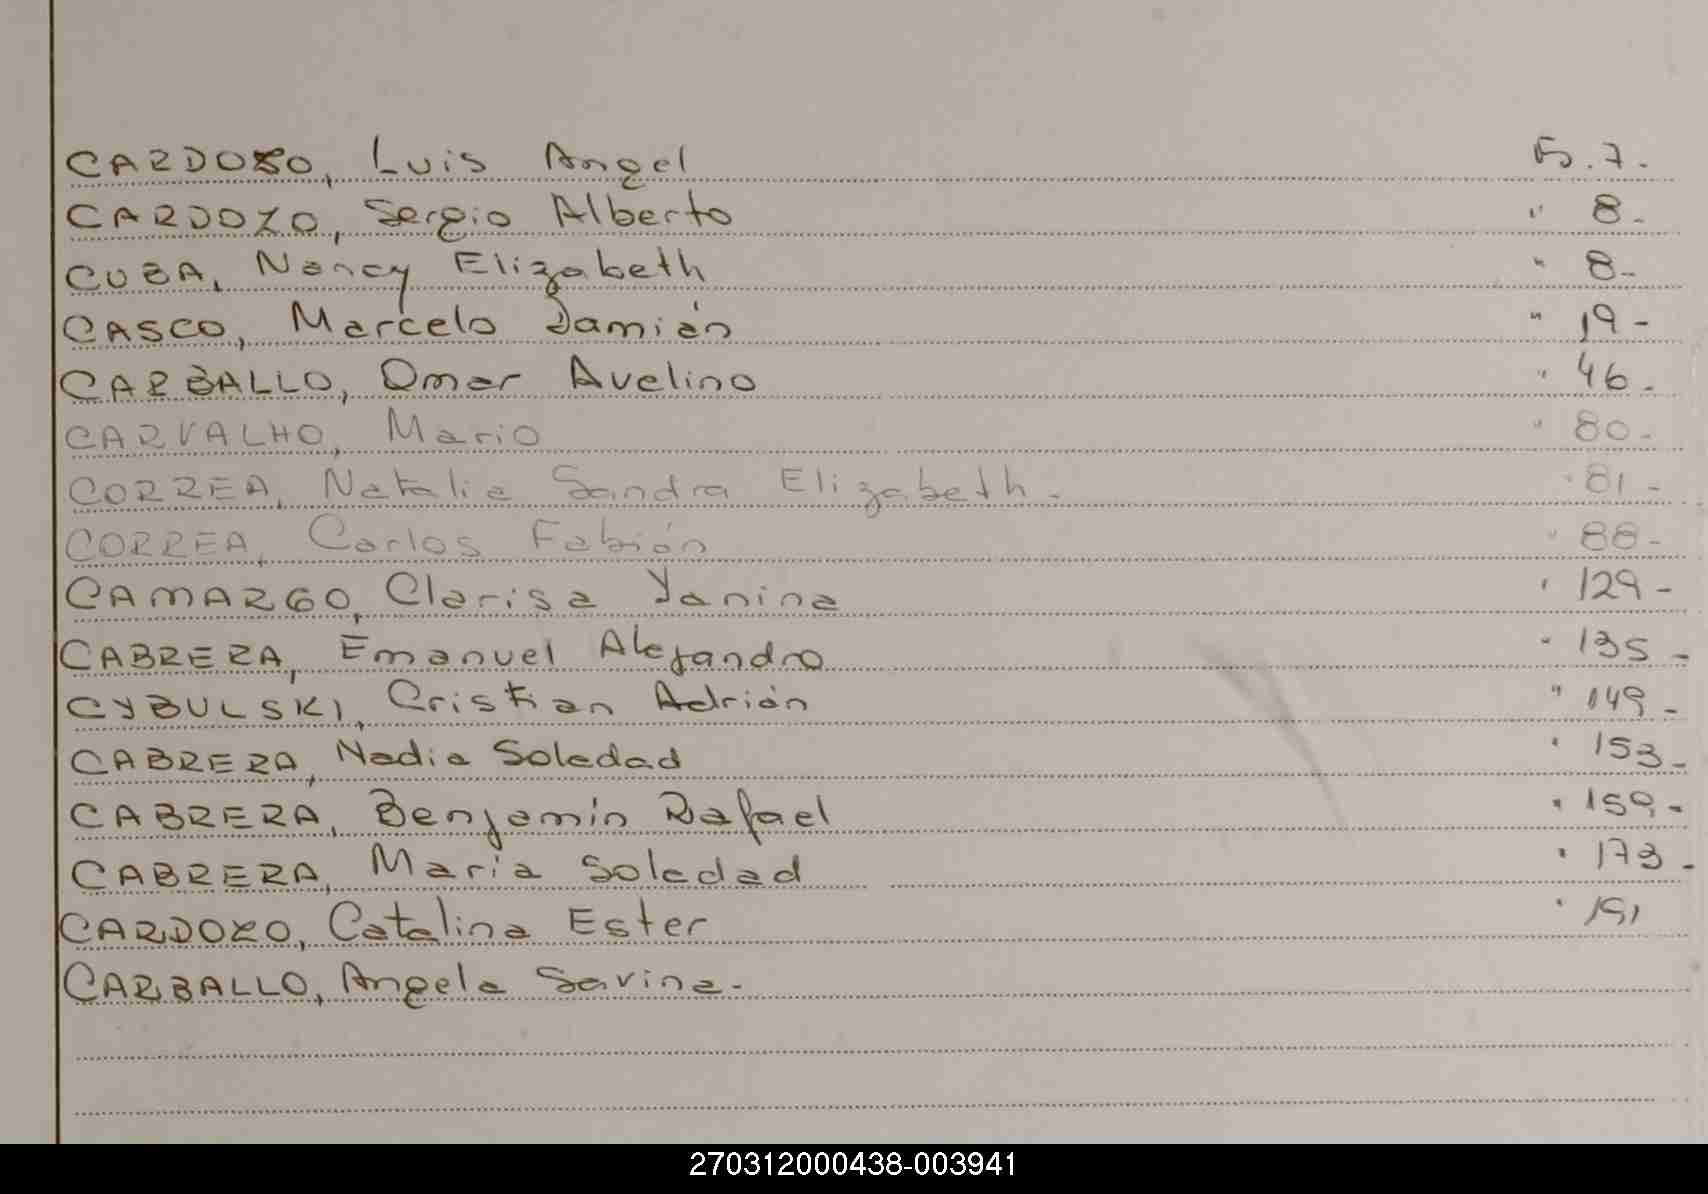 CARDOZO, Luis Angel Fo. 7.-
CARDOZO, Sergio Alberto " 8.-
CUBA, Nancy Elizabeth " 8.-
CASCO, Marcelo Damián " 19-
CARBALLO, Omar Avelino " 46.-
CARVALHO, Mario " 80.-
CORREA, Natalia Sandra Elizabeth.- " 81-
CORREA, Carlos Fabián " 88-
CAMARGO, Clarisa Yanina " 129-
CABRERA, Emanuel Alejandro " 135-
CYBULSKI, Cristian Adrián " 149-
CABRERA, Nadia Soledad " 153-
CABRERA, Benjamín Rafael " 159-
CABRERA, María Soledad " 173-
CARDOZO, Catalina Ester " 191
CARBALLO, Angela Savina.-
270312000438-003941